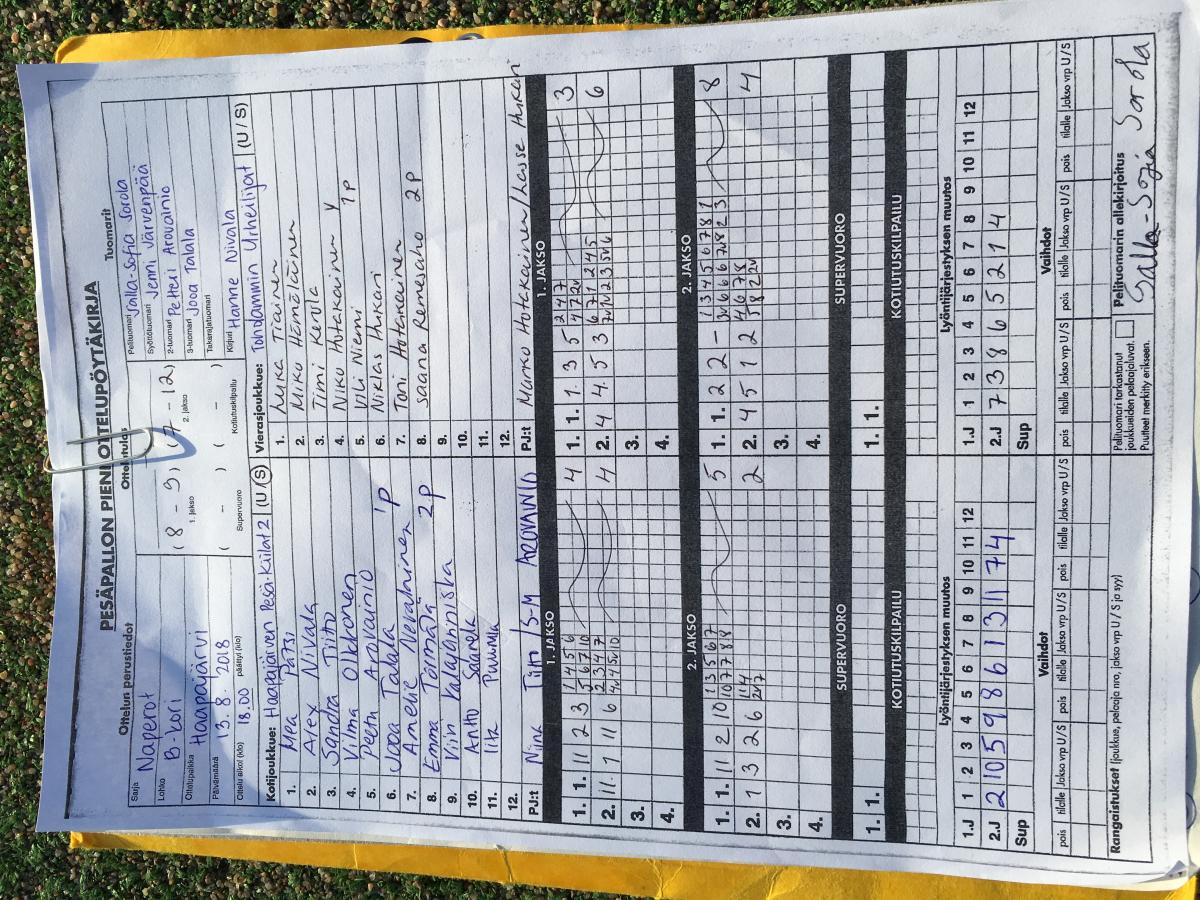 PESÄPALLON PIENI OTTELUPÖYTÄKIRJA
Ottelun perustiedot
Ottelutulos
Tuomarit
Sarja Naperot
Lohko B-Pori
Ottelupaikka Haapajärvi
Päivämäärä 13.8.2018
Ottelu alkoi (klo) 18.00 päättyi (klo)
( 8 - 9 ) ( 7 - 12 )
1. jakso 2. jakso
( - ) ( - )
Supervuoro Kotiutuskilpailu
Pelituomari Salla-Sofia Sorola
Syöttötuomari Jenni Järvenpää
2-tuomari Petteri Arovainio
3-tuomari Jooa Talala
Takarajatuomari
Kirjuri Hanne Nivala
Kotijoukkue: Haapajärven Pesä-Kiilat 2 (U/S)
1. Mea Pätsi
2. Alex Nivala
3. Sandra Tiitto
4. Vilma Olkkonen
5. Peetu Arovainio
6. Jooa Talala 1P
7. Amelie Nevalainen
8. Emma Törmälä 2P
9. Viin Valajanniska
10. Anttto Saarela
11. Iita Puurula
12.
PJ:t Niina Tiitto / S-M AROVAINIO
Vierasjoukkue: Toholammin Urheilijat (U/S)
1. Luka Tiainen
2. Miku Hämäläinen
3. Timi Kerola
4. Niku Hotakainen y
5. Vili Niemi 1P
6. Niklas Hukari
7. Toni Hotakainen
8. Saana Remesaho 2P
9.
10.
11.
12.
PJ:t Marko Hotakainen/Lasse Hukari
1. JAKSO
1. 1. 11 2 3 4
2. 11. 1 11 6 4
3.
4.
1. JAKSO
1. 1. 1. 3 5 3
2. 4 4. 5 3 6
3.
4.
2. JAKSO
1. 1. 11 2 10 5
2. 1 3 2 6 2
3.
4.
2. JAKSO
1. 1. 2 2 - 8
2. 4 5 1 2 4
3.
4.
SUPERVUORO
1. 1.
SUPERVUORO
1. 1.
KOTIUTUSKILPAILU
KOTIUTUSKILPAILU
Lyöntijärjestyksen muutos
1.J 1 2 3 4 5 6 7 8 9 10 11 12
2.J 2 10 5 9 8 6 1 3 11 7 4
Sup
Lyöntijärjestyksen muutos
1.J 1 2 3 4 5 6 7 8 9 10 11 12
2.J 7 3 8 6 5 2 1 4
Sup
Vaihdot
pois tilalle Jakso vrp U/S pois tilalle Jakso vrp U/S pois tilalle Jakso vrp U/S
Vaihdot
pois tilalle Jakso vrp U/S pois tilalle Jakso vrp U/S pois tilalle Jakso vrp U/S
Rangaistukset (joukkue, pelaaja nro, jakso vrp U/S ja syy)
Pelituomari tarkastanut
joukkueiden pelaajaluvat.
Puutteet merkitty erikseen.
Pelituomarin allekirjoitus
Salla-Sofia Sorola